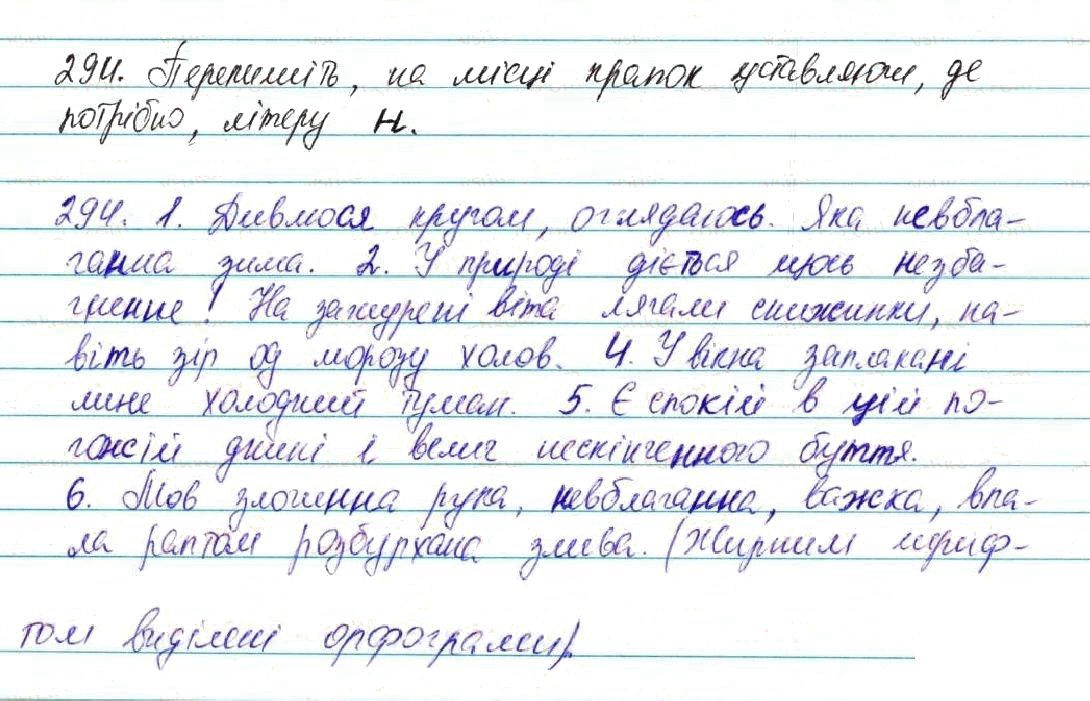 294. Перепишіть, на місці крапок уставляючи, де
потрібно, літеру н.
294. 1. Дивлюся кругом, оглядаюсь. Яка невбла-
ганна зима. 2. У природі діється щось незба-
гненне! На зажурені віта лягали сніжинки, на-
віть зір од морозу холов. 4. У вікна заплакані
лине холодний туман. 5. Є спокій в цій по-
гожій днині і велич нескінченного буття.
6. Мов злочинна рука, невблаганна, важка, впа-
ла раптом розбурхана злива. (Жирним шриф-
том виділені орфограми).